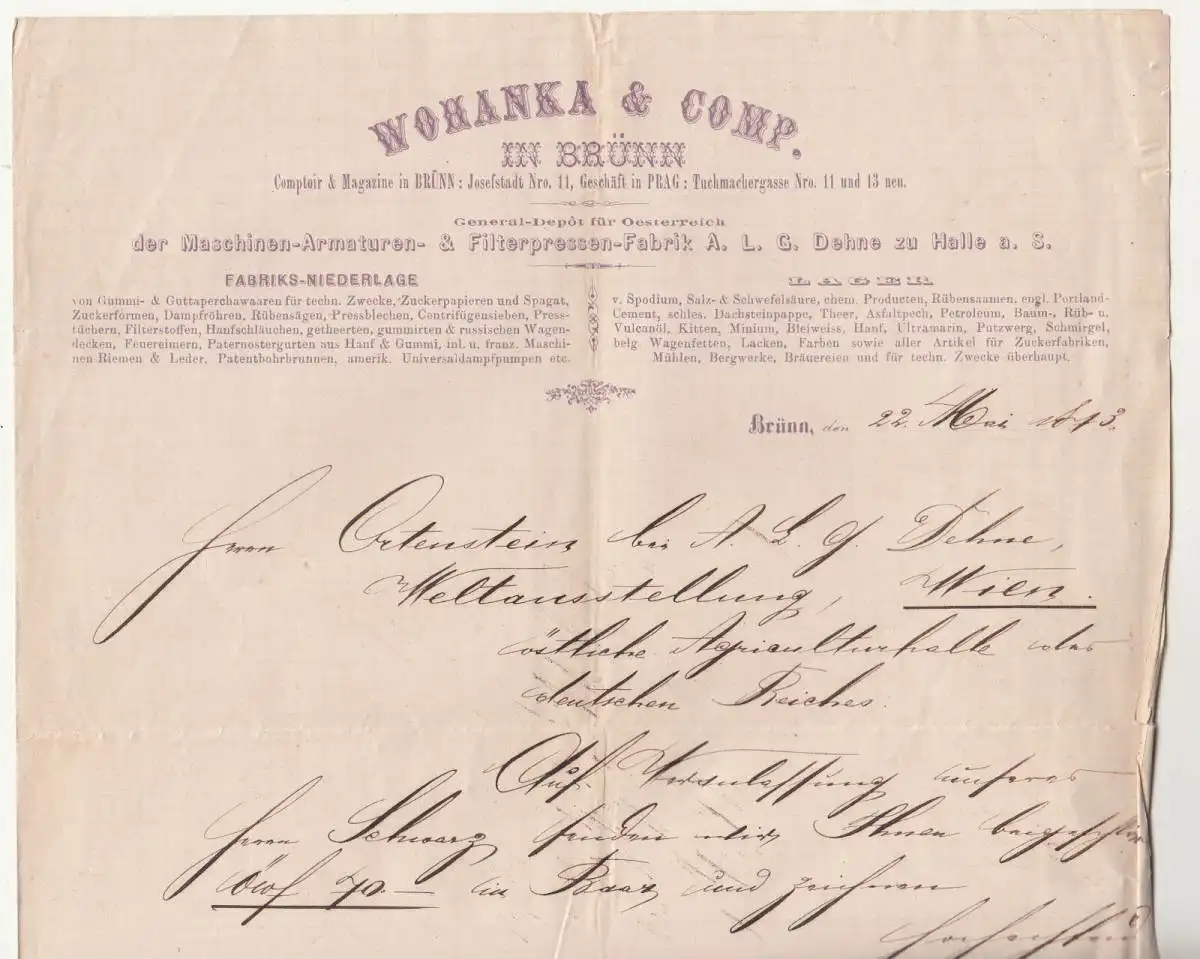 WOHANKA & COMP.
IN BRÜNN
Comptoir & Magazine in BRÜNN: Josefstadt Nro. 11, Geschäft in PRAG: Tuchmachergasse Nro. 11 und 13 neu.
General-Depôt für Oesterreich
der Maschinen-Armaturen- & Filterpressen-Fabrik A. L. G. Dehne zu Halle a. S.
FABRIKS-NIEDERLAGE
von Gummi- & Guttaperchawaaren für techn. Zwecke, Zuckerpapieren und Spagat,
Zuckerformen, Dampfröhren, Rübensägen, Pressblechen, Centrifügensieben, Press-
tüchern, Filterstoffen, Hanfschläuchen, getheerten, gummirten & russischen Wagen-
decken, Feuereimern, Paternostergurten aus Hanf & Gummi, inl. u. franz. Maschi-
nen-Riemen & Leder, Patentbohrbrunnen, amerik. Universaldampfpumpen etc.
LAGER
v. Spodium, Salz- & Schwefelsäure, chem. Producten, Rübensaamen, engl. Portland-
Cement, schles. Dachsteinpappe, Theer, Asfaltpech, Petroleum, Baum-, Rüb- u.
Vulcanöl, Kitten, Minium, Bleiweiss, Hanf, Ultramarin, Putzwerg, Schmirgel,
belg. Wagenfetten, Lacken, Farben sowie aller Artikel für Zuckerfabriken,
Mühlen, Bergwerke, Bräuereien und für techn. Zwecke überhaupt.
Brünn, den 22. Mai 1873.
Herrn Ortenstein bei A. L. G. Dehne,
Weltausstellung, Wien.
östliche Agriculturhalle des
deutschen Reiches.
Auf Veranlassung unseres
Herrn Schwarz senden wir Ihnen
70.— in Baar und zeichnen